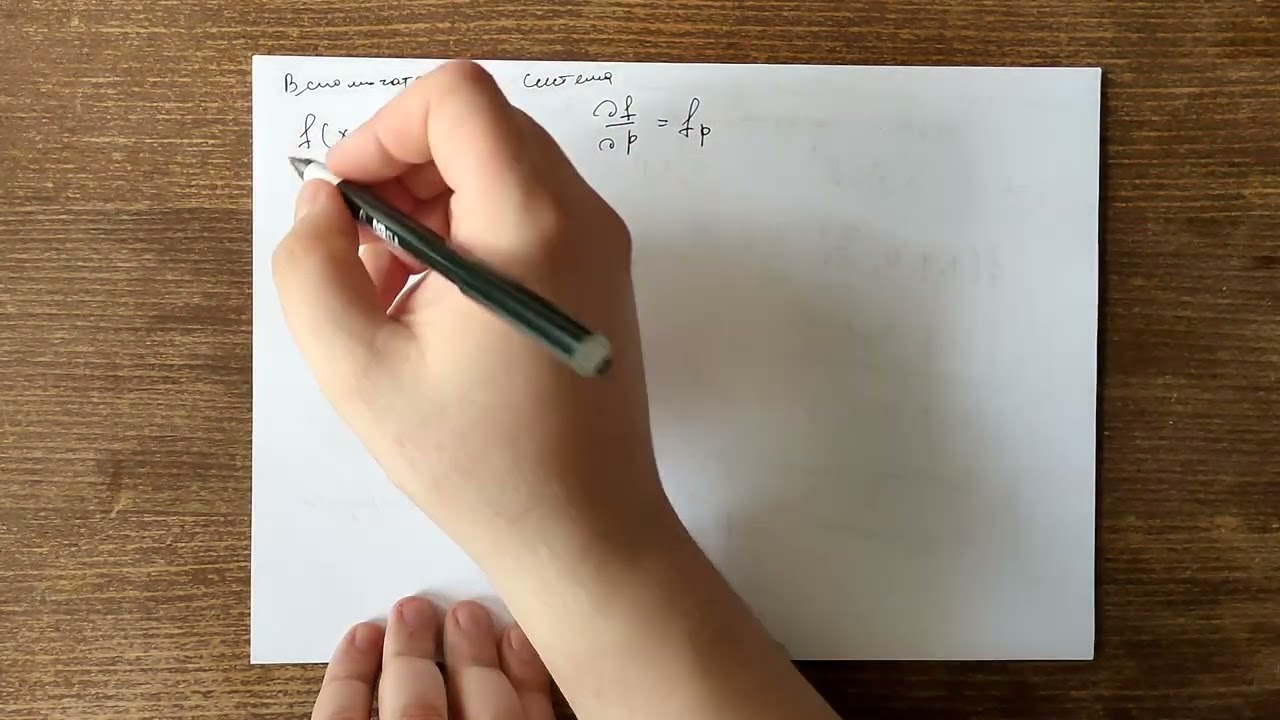 Вспомогат система
f(x ∂f/∂p = fp